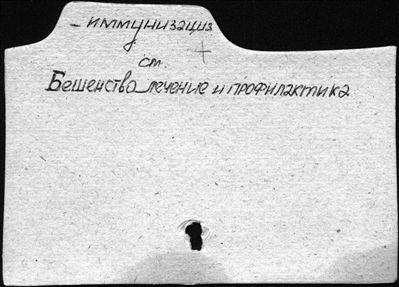 – иммунизация
ст.
Бешенство лечение и профилактика